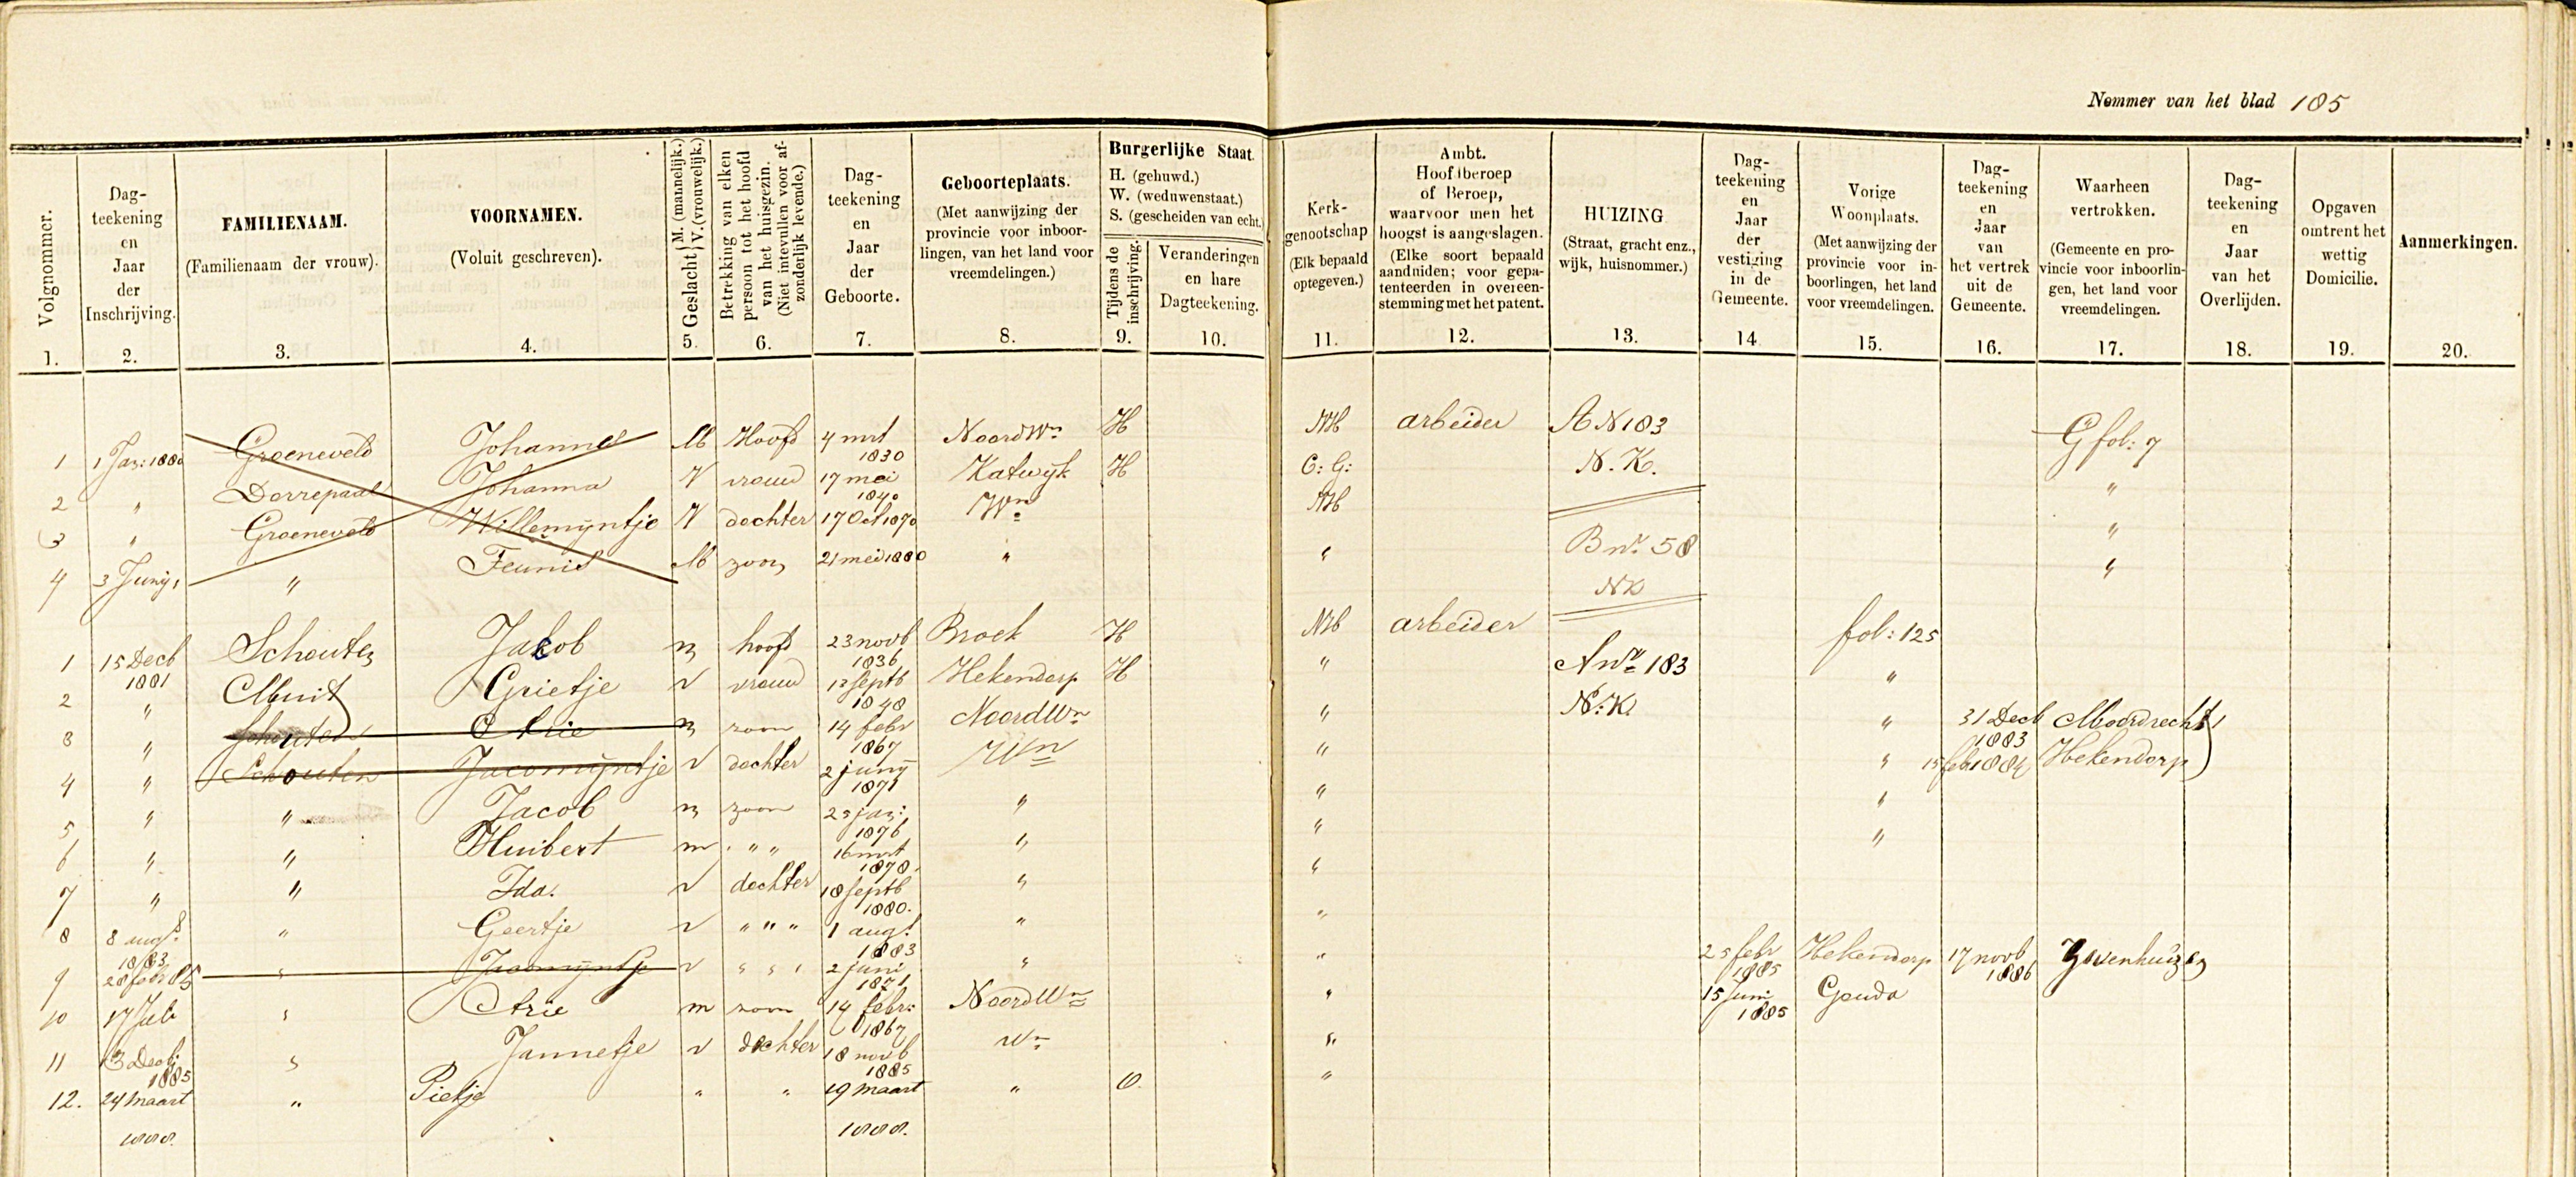 Nummer van het blad 185
Volgnommer. 1.
Dag-teekening en Jaar der Inschrijving. 2.
FAMILIENAAM. (Familienaam der vrouw). 3.
VOORNAMEN. (Voluit geschreven). 4.
Geslacht M. (mannelijk.) V. (vrouwelijk.) 5.
Betrekking van elken persoon tot het hoofd van het huisgezin. (Niet intevullen voor afzonderlijk levende.) 6.
Dag-teekening en Jaar der Geboorte. 7.
Geboorteplaats. (Met aanwijzing der provincie voor inboorlingen, van het land voor vreemdelingen.) 8.
Burgerlijke Staat. H. (gehuwd.) W. (weduwenstaat.) S. (gescheiden van echt.)
Tijdens de inschrijving. 9.
Veranderingen en hare Dagteekening. 10.
Kerk-genootschap (Elk bepaald optegeven.) 11.
Ambt. Hoofdberoep of Beroep, waarvoor men het hoogst is aangeslagen. (Elke soort bepaald aanduiden; voor gepatenteerden in overeenstemming met het patent. 12.
HUIZING (Straat, gracht enz., wijk, huisnommer.) 13.
Dag-teekening en Jaar der vestiging in de Gemeente. 14
Vorige Woonplaats. (Met aanwijzing der provincie voor inboorlingen, het land voor vreemdelingen. 15.
Dag-teekening en Jaar van het vertrek uit de Gemeente. 16.
Waarheen vertrokken. (Gemeente en provincie voor inboorlingen, het land voor vreemdelingen. 17.
Dag-teekening en Jaar van het Overlijden. 18.
Opgaven omtrent het wettig Domicilie. 19.
Aanmerkingen. 20.
1 1 Jan: 1880 Groeneveld Johannes M Hoofd 4 mrt 1830 NoordWn H NH arbeider A N 183 G fol: 7
2 " Dorrepaal Johanna V vrouw 17 mei 1840 Katwijk H C: G: N. K. "
3 " Groeneveld Willemijntje V dochter 17 Oct 1870 Wn NH "
4 3 Junij " Teunis M zoon 21 mei 1880 " " B no 58 NK "
1 15 Decb 1881 Schouten Jakob m hoofd 23 novb 1836 Broek H NH arbeider fol: 125
2 " Muit Grietje v vrouw 12 septb 1848 Hekendorp H " A no 183 "
3 " Schouten Arie m zoon 14 febr 1867 NoordWn " N: K. " 31 Decb 1883 Moordrecht
4 " Schouten Jacomijntje v dochter 2 junij 1871 Wn " " 15 feb 1884 Hekendorp
5 " " Jacob m zoon 25 jan: 1876 " " "
6 " " Huibert m " " 16 mrt 1878 " " "
7 " " Ida. v dochter 18 septb 1880. " "
8 8 augt 1883 " Geertje v " " " 1 augt 1883 " "
9 28 febr 85 " Jacomijntje v " " " 2 juni 1871 " " 25 febr 1885 Hekendorp 17 novb 1886 Zevenhuizen
10 17 Juli " Arie m zoon 14 febr: 1867 NoordWn " 15 Juni 1885 Gouda
11 3 Decb: 1885 " Jannetje v dochter 18 novb 1885 Wn "
12. 24 Maart 1888. " Pietje " " 19 Maart 1888. " O. "